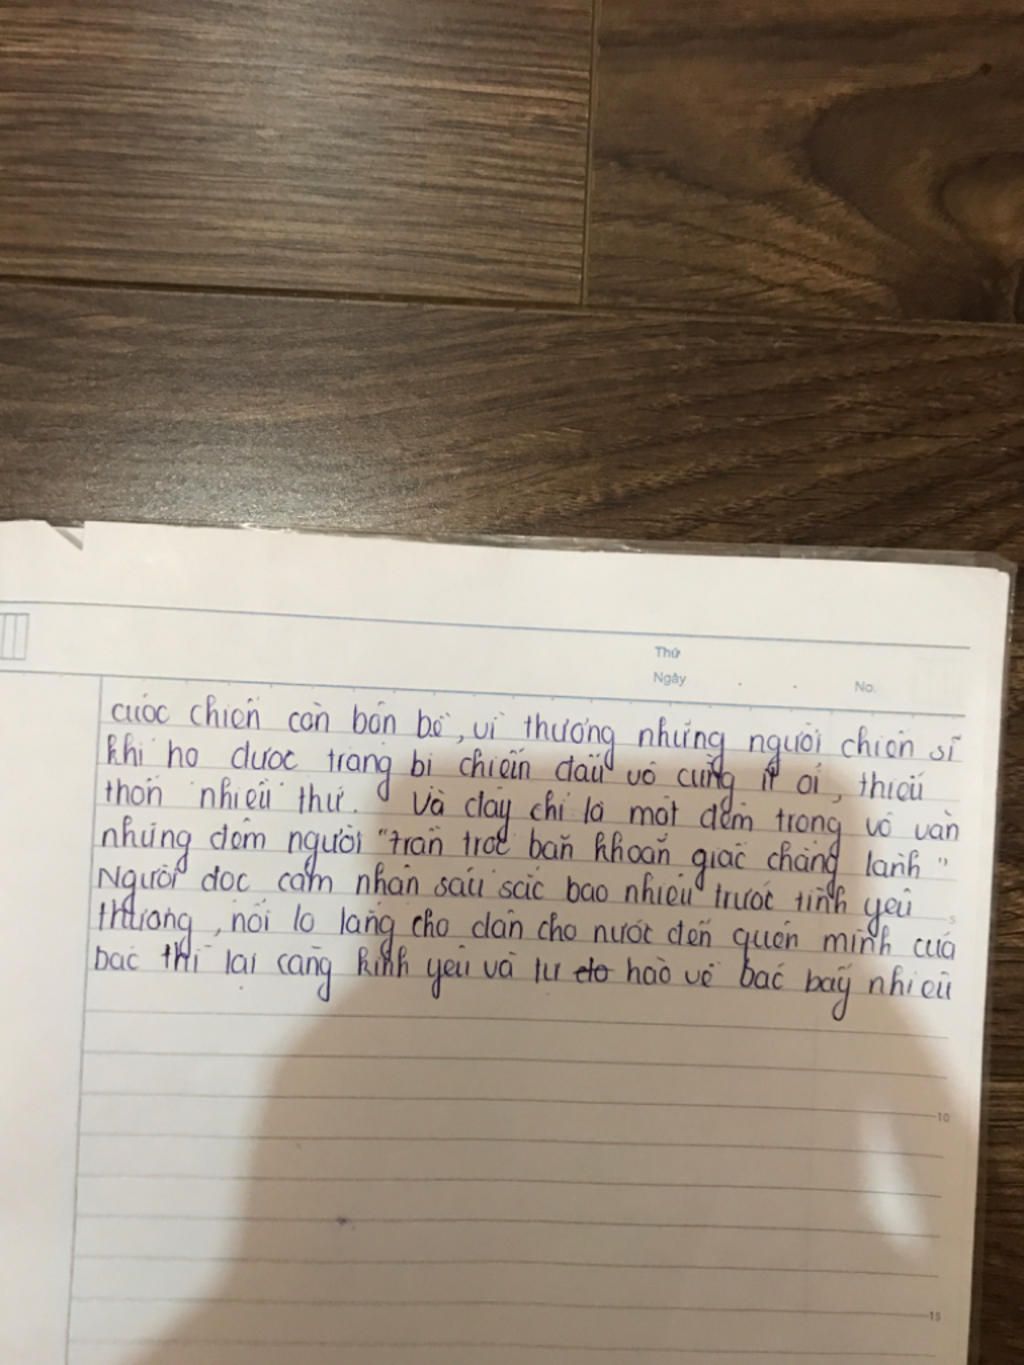 Thứ
Ngày . . No.
cuộc chiến còn bộn bề, vì thương những người chiến sĩ
khi họ được trang bị chiến đấu vô cùng ít ỏi, thiếu
thốn nhiều thứ. Và đây chỉ là một đêm trong vô vàn
những đêm người "trằn trọc băn khoăn giấc chẳng lành"
Người đọc cảm nhận sâu sắc bao nhiêu trước tình yêu
thương, nỗi lo lắng cho dân cho nước đến quên mình của 5
bác thì lại càng kính yêu và tự hào về bác bấy nhiêu
10
15